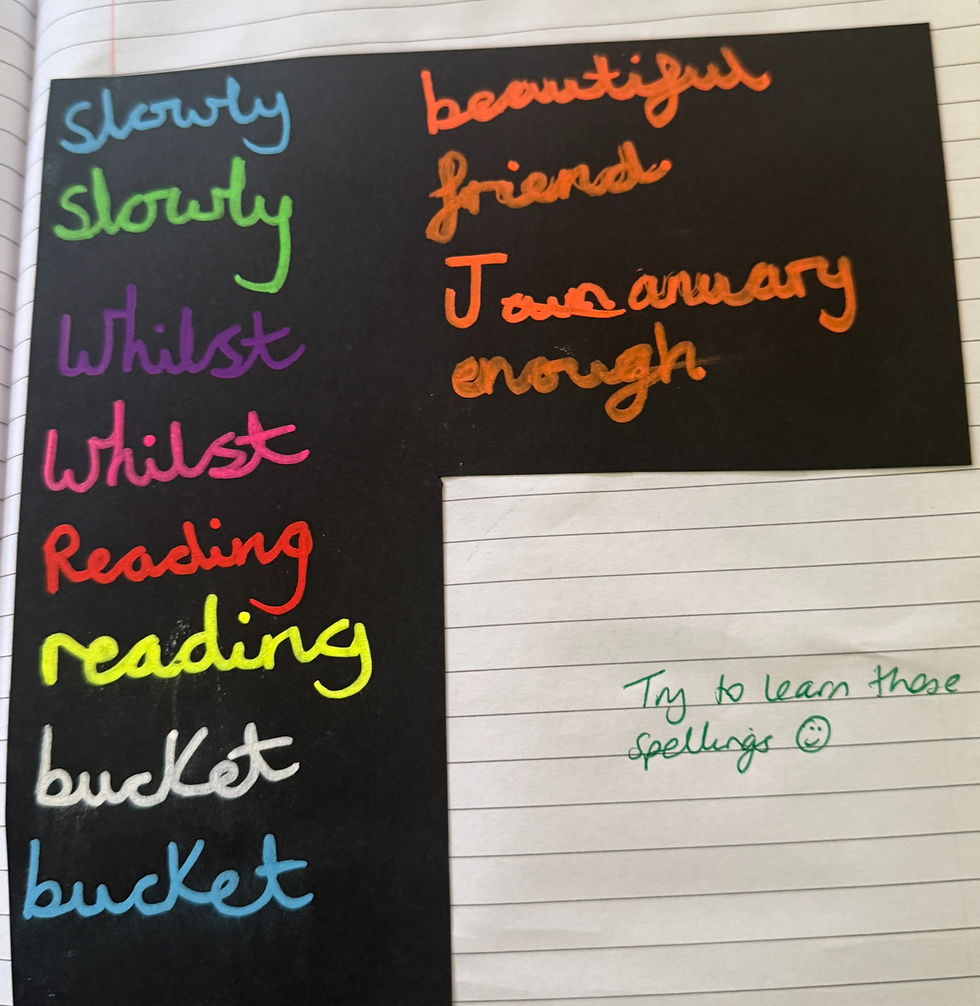 slowly
slowly
Whilst
Whilst
Reading
reading
bucket
bucket
beautiful
friend
January
enough
Try to learn these
spellings ☺